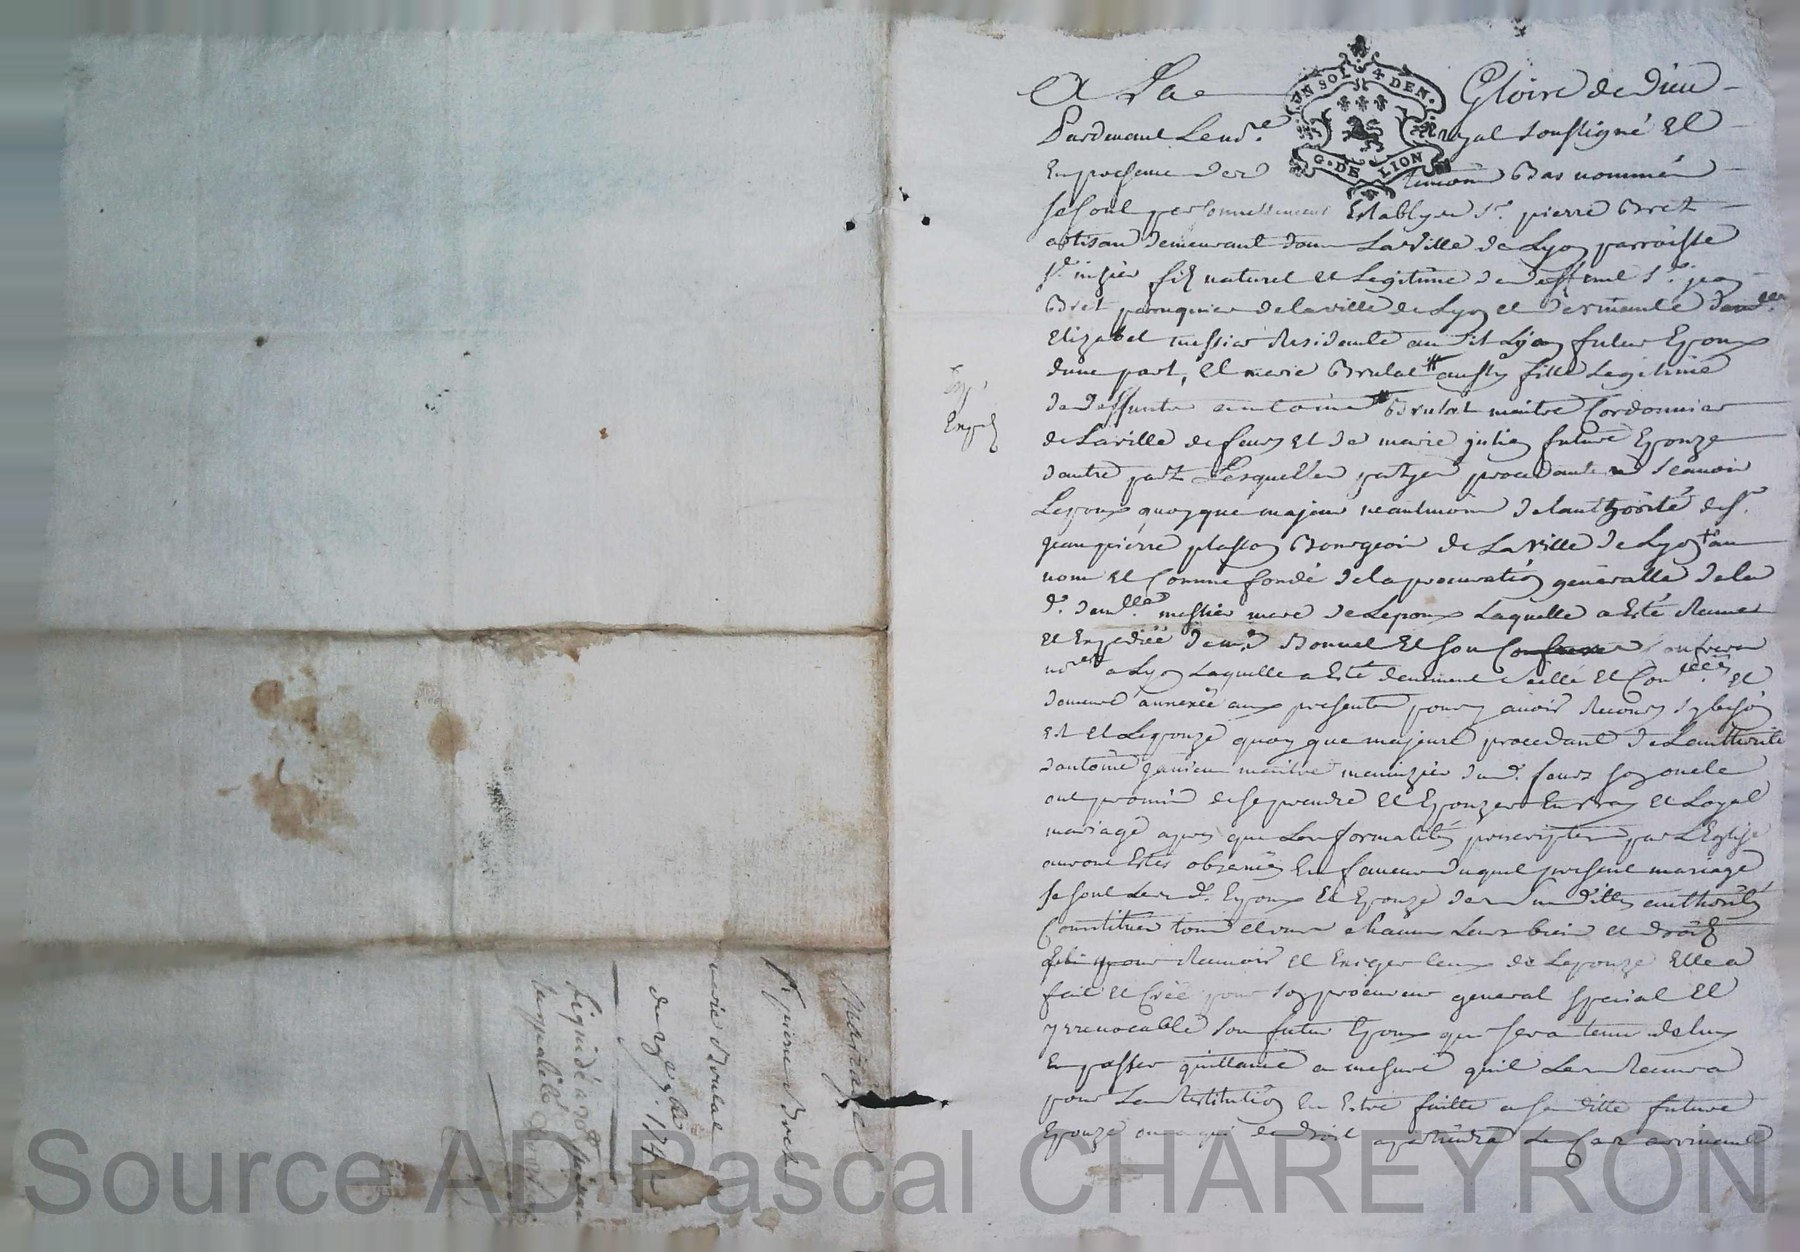 A La Gloire de Dieu
UN SOL 4 DEN.
G. DE LION
Pardevant Le no.re Royal soussigné Et
En presence des temoins Bas nommés
se sont personnellement Establyes Sr. pierre Bret
artisan demeurant dans La Ville de Lyon parroisse
St. nizier fils naturel et Legitime de deffunt Sr. jean
Bret perruquier de la ville de Lyon et de vivante dam.lle
Elizabet messier Residante au dit Lyon futur Epoux
dune part, et marie Brulat aussy fille Legitime
de deffunt antoine Brulat maitre Cordonnier
de La ville de feurs et de marie julien future Epouze
dautre part Lesquelles partyes procedantes scavoir
Lepoux quoyque majeur neantmoins de lauthorité de Sr.
jean pierre plasson Bourgeois de La Ville de Lyon au
nom et Comme fondé de la procuration generalle de la
d. dam.lle messier mere de Lepoux Laquelle a Esté Receue
et Expediée de me. Bonnel Et son confrere
no.res a Lyon Laquelle a Esté deuement scellé et Con.llée Et
demeure annexée aux presentes pour y avoir Recours sy besoin
est et Lepouze quoy que majeure procedant de Lauthorité
dantoine janien maitre menuzier du d. feurs son oncle
ont promis de se prendre et Epouzer En vray et Loyal
mariage apres que Les formalités prescriptes par L'Eglise
auront Estés observées En faveur duquel present mariage
se sont Les d. Epoux Et Epouze de leurs dittes authorités
Constitués tous et uns chacuns Leurs biens et droits
Et pour Recevoir et Exiger ceux de Lepouze Elle a
fait et Créé pour son procureur general special et
yrrevocable son futur Epoux qui sera tenu de luy
En passer quittance a mesure quil Les Recevra
pour La Restitution En Estre faitte a sa ditte future
Epouze ou a qui de droit apartiendra Le Cas arrivant
Exp.
mariage
Sr pierre Bret
marie Brulat
Source AD Pascal CHAREYRON